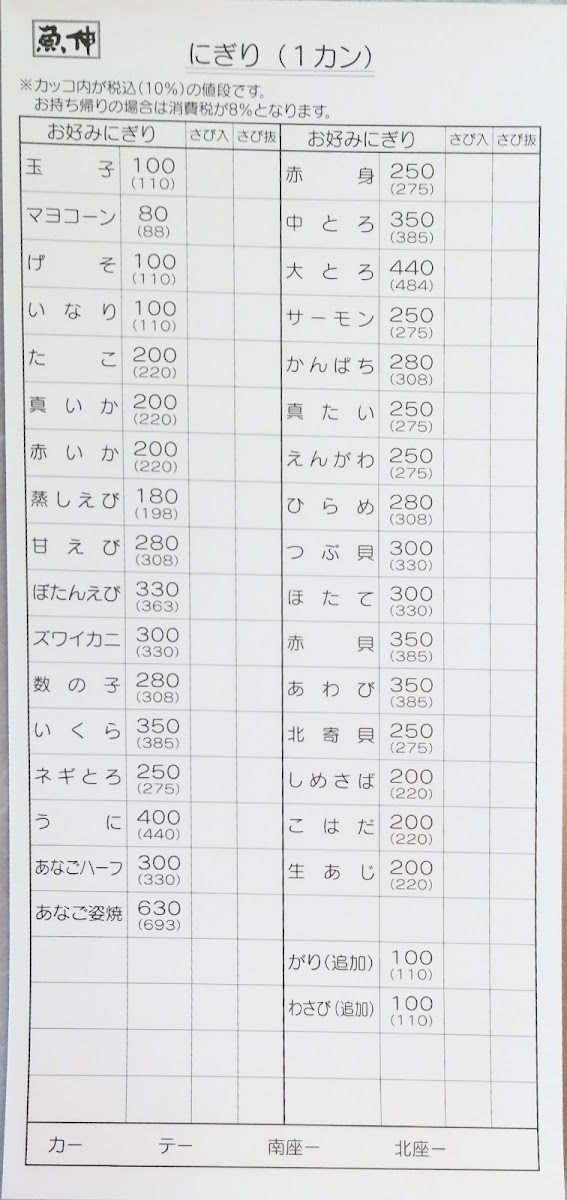 魚伸
にぎり（１カン）
※カッコ内が税込(10%)の値段です。
お持ち帰りの場合は消費税が8%となります。
お好みにぎり さび入 さび抜 お好みにぎり さび入 さび抜
玉子 100 (110)
マヨコーン 80 (88)
げそ 100 (110)
いなり 100 (110)
たこ 200 (220)
真いか 200 (220)
赤いか 200 (220)
蒸しえび 180 (198)
甘えび 280 (308)
ぼたんえび 330 (363)
ズワイカニ 300 (330)
数の子 280 (308)
いくら 350 (385)
ネギとろ 250 (275)
うに 400 (440)
あなごハーフ 300 (330)
あなご姿焼 630 (693)
赤身 250 (275)
中とろ 350 (385)
大とろ 440 (484)
サーモン 250 (275)
かんぱち 280 (308)
真たい 250 (275)
えんがわ 250 (275)
ひらめ 280 (308)
つぶ貝 300 (330)
ほたて 300 (330)
赤貝 350 (385)
あわび 350 (385)
北寄貝 250 (275)
しめさば 200 (220)
こはだ 200 (220)
生あじ 200 (220)
がり(追加) 100 (110)
わさび(追加) 100 (110)
カー テー 南座ー 北座ー